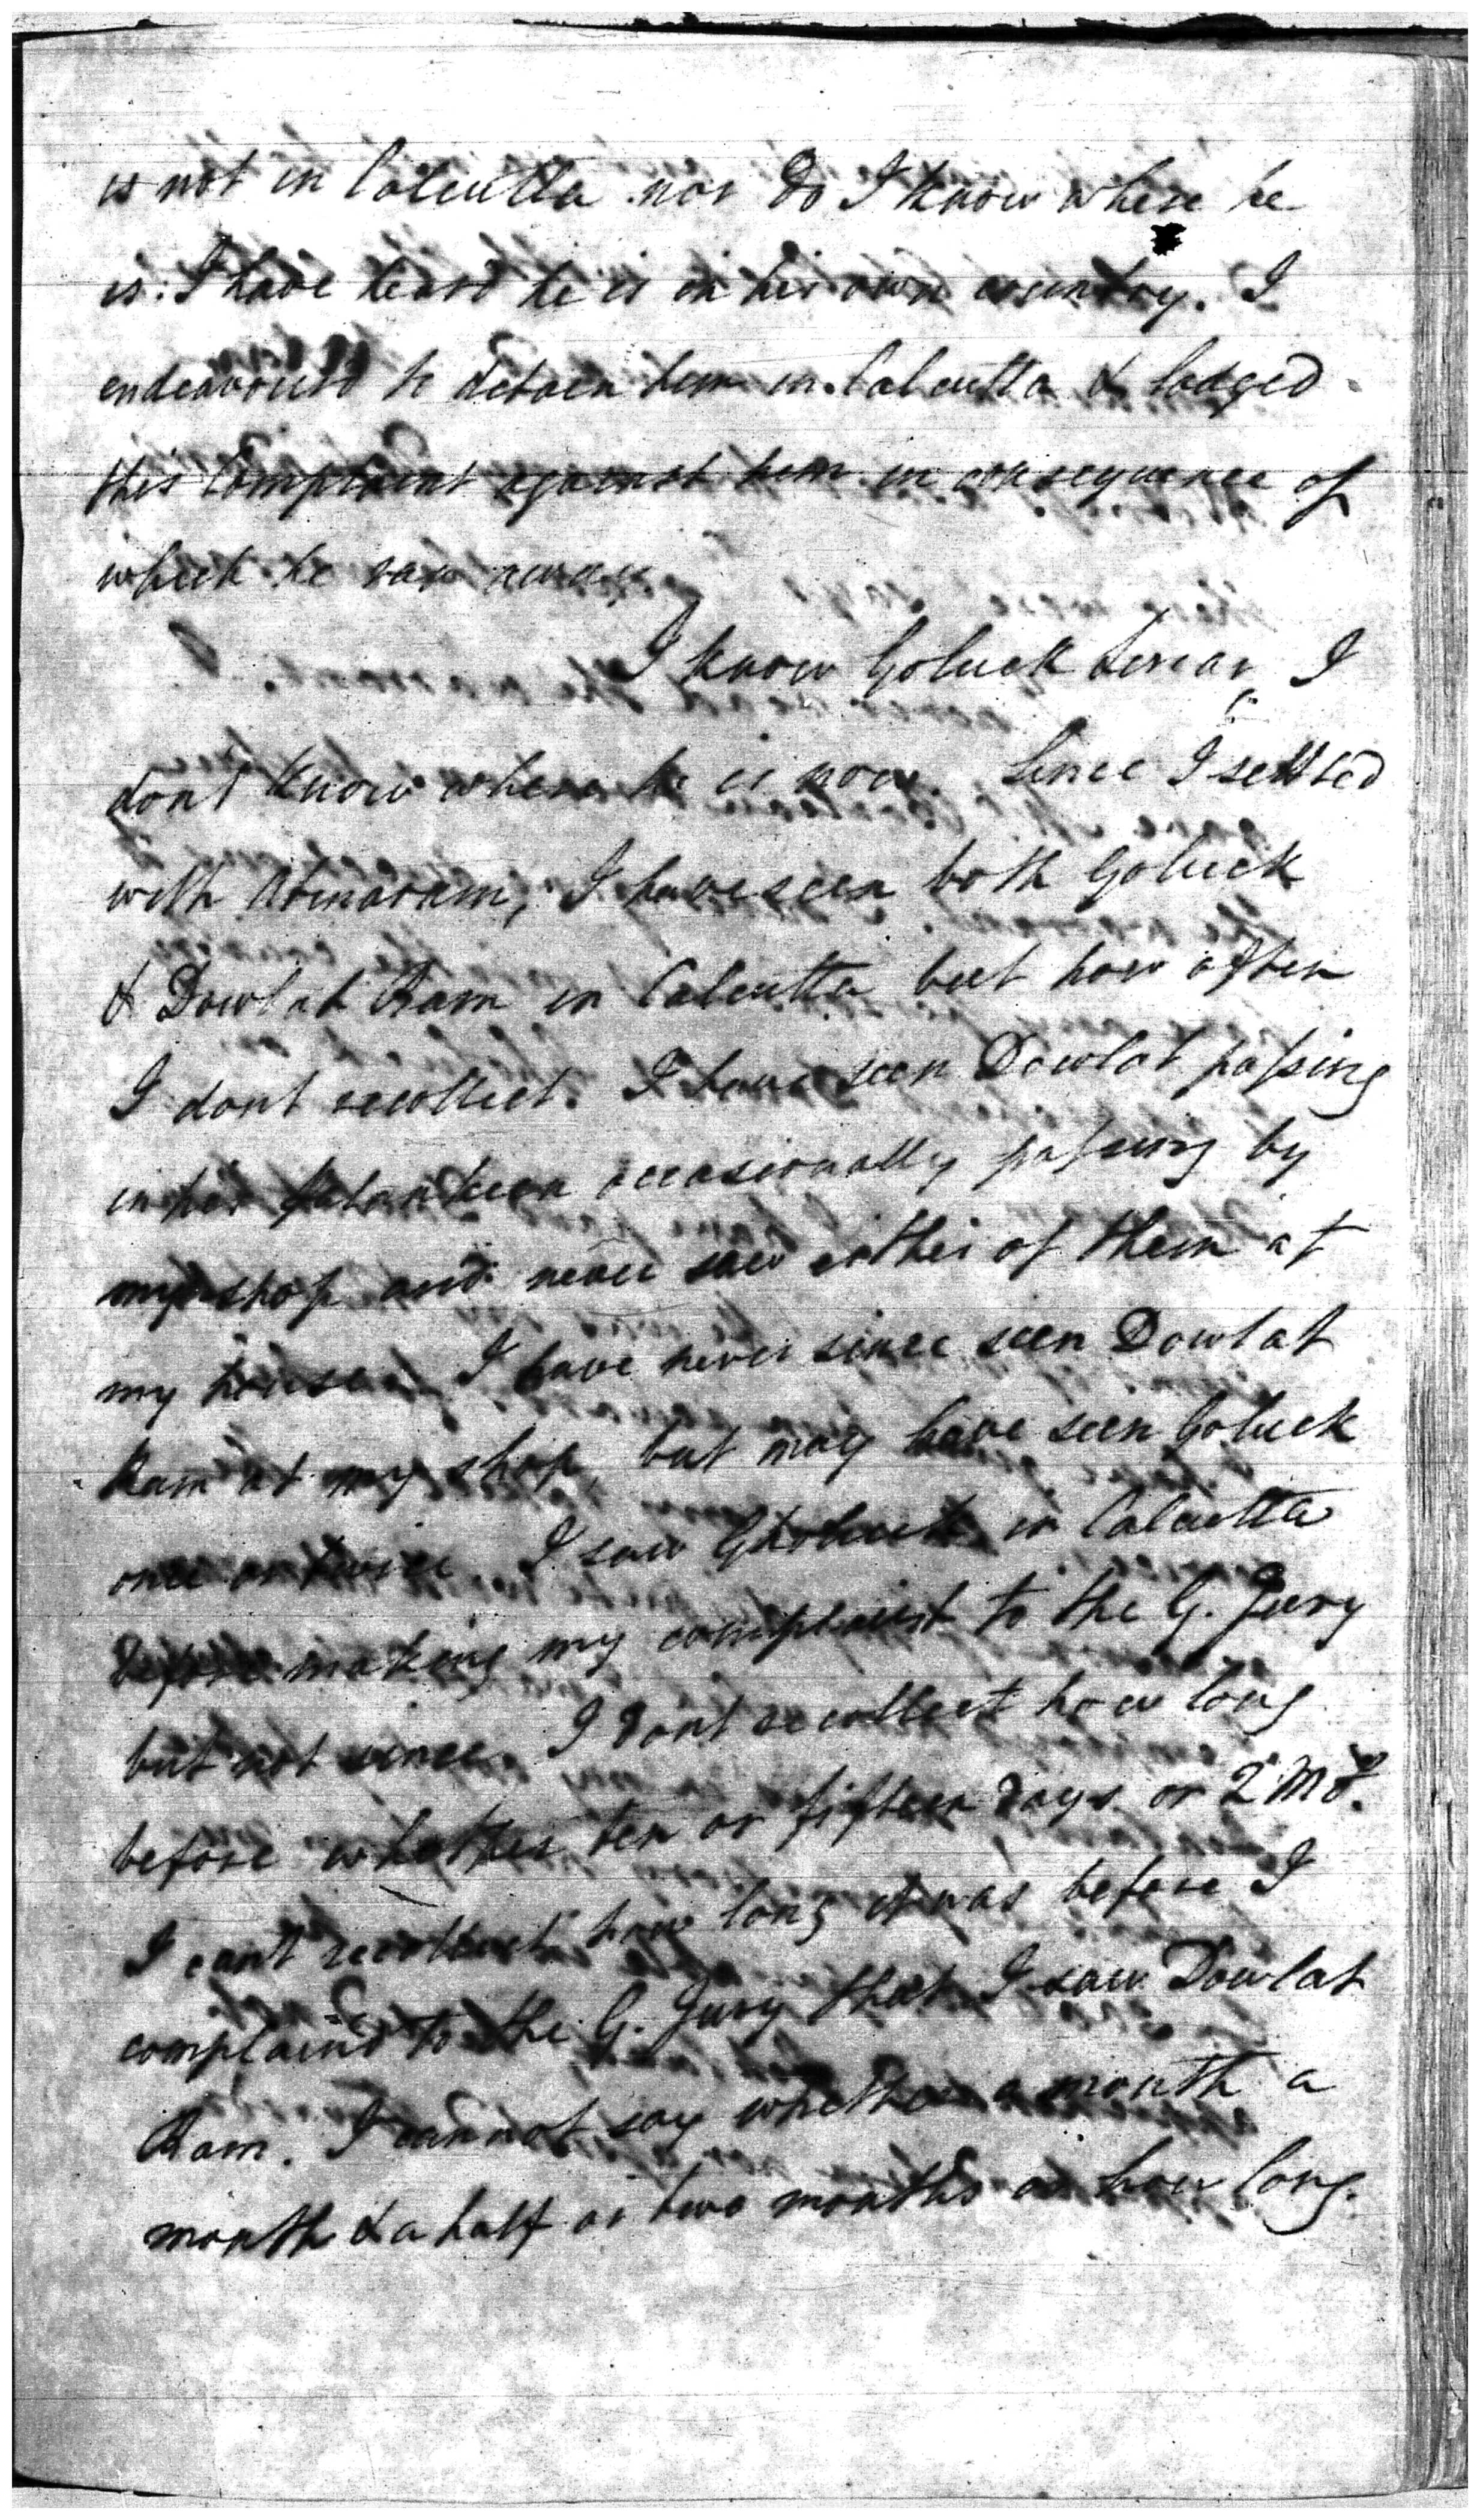 is not in Calcutta nor do I know where he
is. I have heard he is in his own country. I
endeavourd to detain him in Calcutta & lodged
this Complaint against him in consequence of
which he ran away.
I know Goluck I
dont know where he is now. Since I settled
with Atmaram, I have seen both Goluck
& Dowlat Ram in Calcutta but how often
I dont recollect. I have seen Dowlat passing
in his Palankeen occasionally passing by
my shop and never saw either of them at
my house. I have never since seen Dowlat
Ram at my shop, but may have seen Goluck
once or twice I saw Gholuck in Calcutta
before making my complaint to the G. Jury
but not since. I dont recollect how long
before whether ten or fifteen days or 2 Mos.
I cant recollect how long it was before I
complaind to the G. Jury that I saw Dowlat
Ram. I cannot say whether a month a
month & a half or two months or how long.